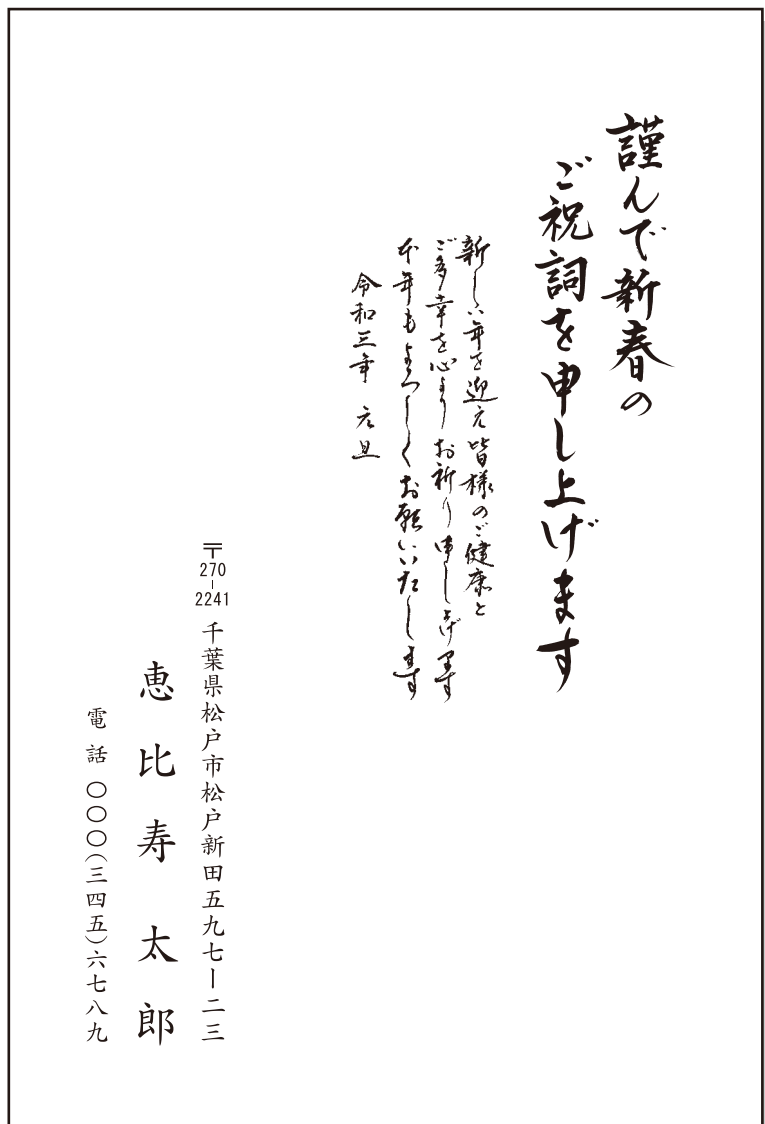 謹んで新春の
ご祝詞を申し上げます
新しい年を迎え皆様のご健康と
ご多幸を心よりお祈り申し上げます
本年もよろしくお願いいたします
令和三年 元旦
〒270-2241
千葉県松戸市松戸新田五九七ー二三
恵比寿太郎
電話 〇〇〇(三四五)六七八九